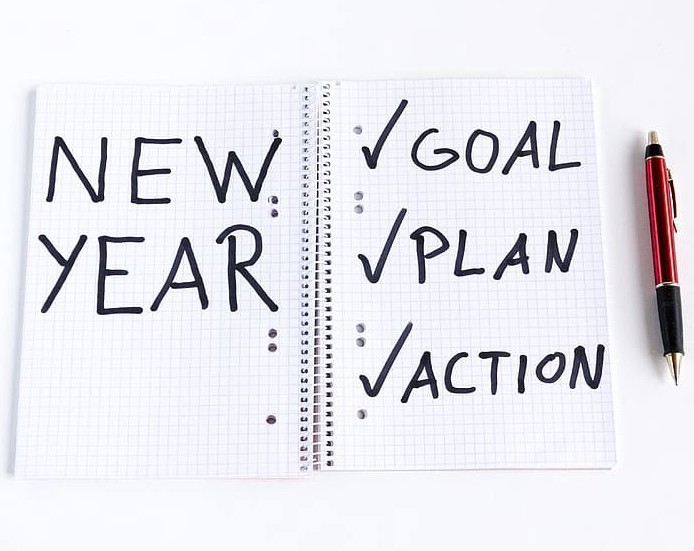 NEW
YEAR
✓ GOAL
✓ PLAN
✓ ACTION